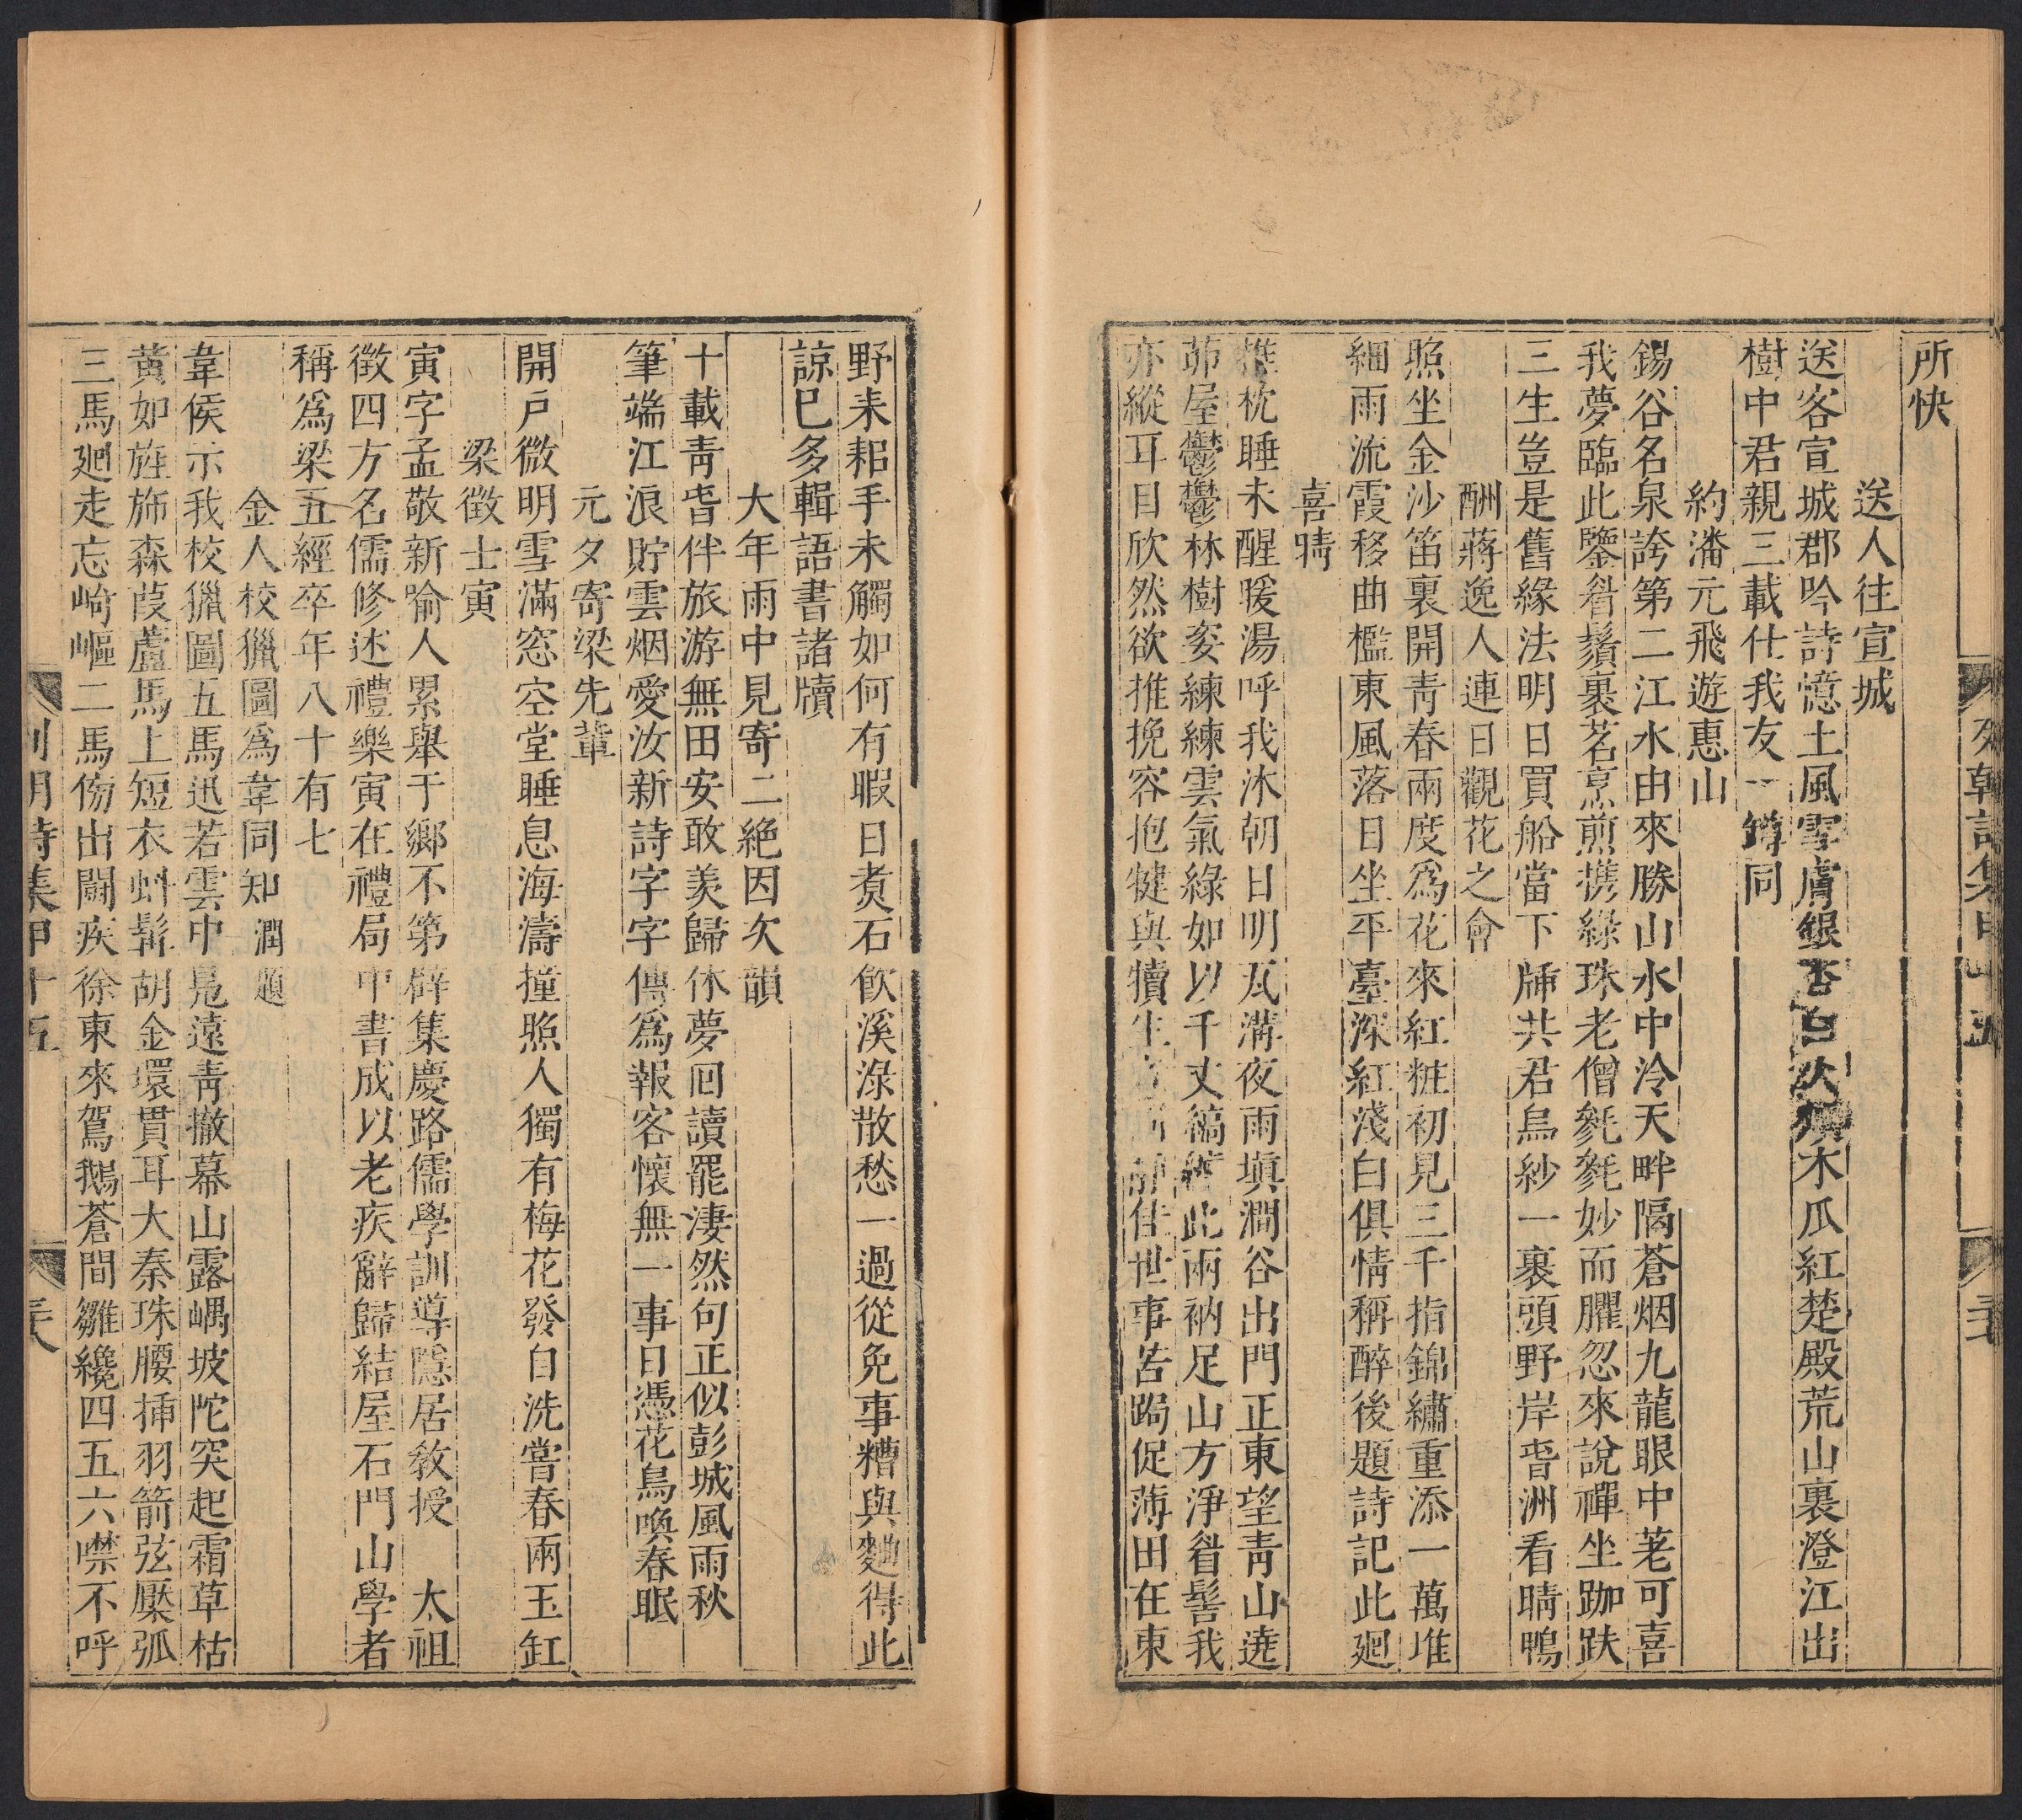 所快
送人往宣城
送客宣城郡吟詩憶土風雪膚銀杏白火頰木瓜紅楚殿荒山裏澄江出
樹中君親三載仕我友一罇同
約潘元飛遊惠山
錫谷名泉誇第二江水由來勝山水中泠天畔隔蒼烟九龍眼中茗可喜
我夢臨此鑒眉鬚裹茗烹煎携綠珠老僧毿毿妙而臞忽來說禪坐跏趺
三生豈是舊緣法明日買船當下牐共君烏紗一裹頭野岸春洲看睛鴨
酬蔣逸人連日觀花之會
照坐金沙笛裏開青春兩度爲花來紅粧初見三千指錦繡重添一萬堆
細雨流霞移曲檻東風落日坐平臺深紅淺白俱情稱醉後題詩記此廻
喜晴
推枕睡未醒暖湯呼我沐朝日明瓦溝夜雨塡澗谷出門正東望青山遶
茆屋鬱鬱林樹姿練練雲氣綠如以千丈縞結此兩衲足山方淨眉髻我
亦縱耳目欣然欲推挽容抱犍與犢生住世事苦跼促薄田在東
野耒耜手未觸如何有暇日煑石飲溪淥散愁一過從免事糟與麴得此
諒已多輯語書諸牘
大年雨中見寄二絶因次韻
十載靑春伴旅游無田安敢羨歸休夢回讀罷淒然句正似彭城風雨秋
筆端江浪貯雲烟愛汝新詩字字傳爲報客懷無一事日憑花鳥喚春眠
元夕寄梁先輩
開戶微明雪滿窓空堂睡息海濤撞照人獨有梅花發自洗嘗春兩玉缸
梁徵士寅
寅字孟敬新喻人累舉于鄉不第辟集慶路儒學訓導隱居敎授　太祖
徵四方名儒修述禮樂寅在禮局中書成以老疾辭歸結屋石門山學者
稱爲梁五經卒年八十有七
金人校獵圖爲韋同知 潤 題
韋侯示我校獵圖五馬迅若雲中鳬遠靑撤幕山露嵎坡陀突起霜草枯
黃如旌斾森葭蘆馬上短衣虯髯胡金環貫耳大秦珠腰揷羽箭弦壓弧
三馬廻走忘崎嶇二馬傍出鬭疾徐東來鴐鵝蒼間雛纔四五六噤不呼
列朝詩集甲十五